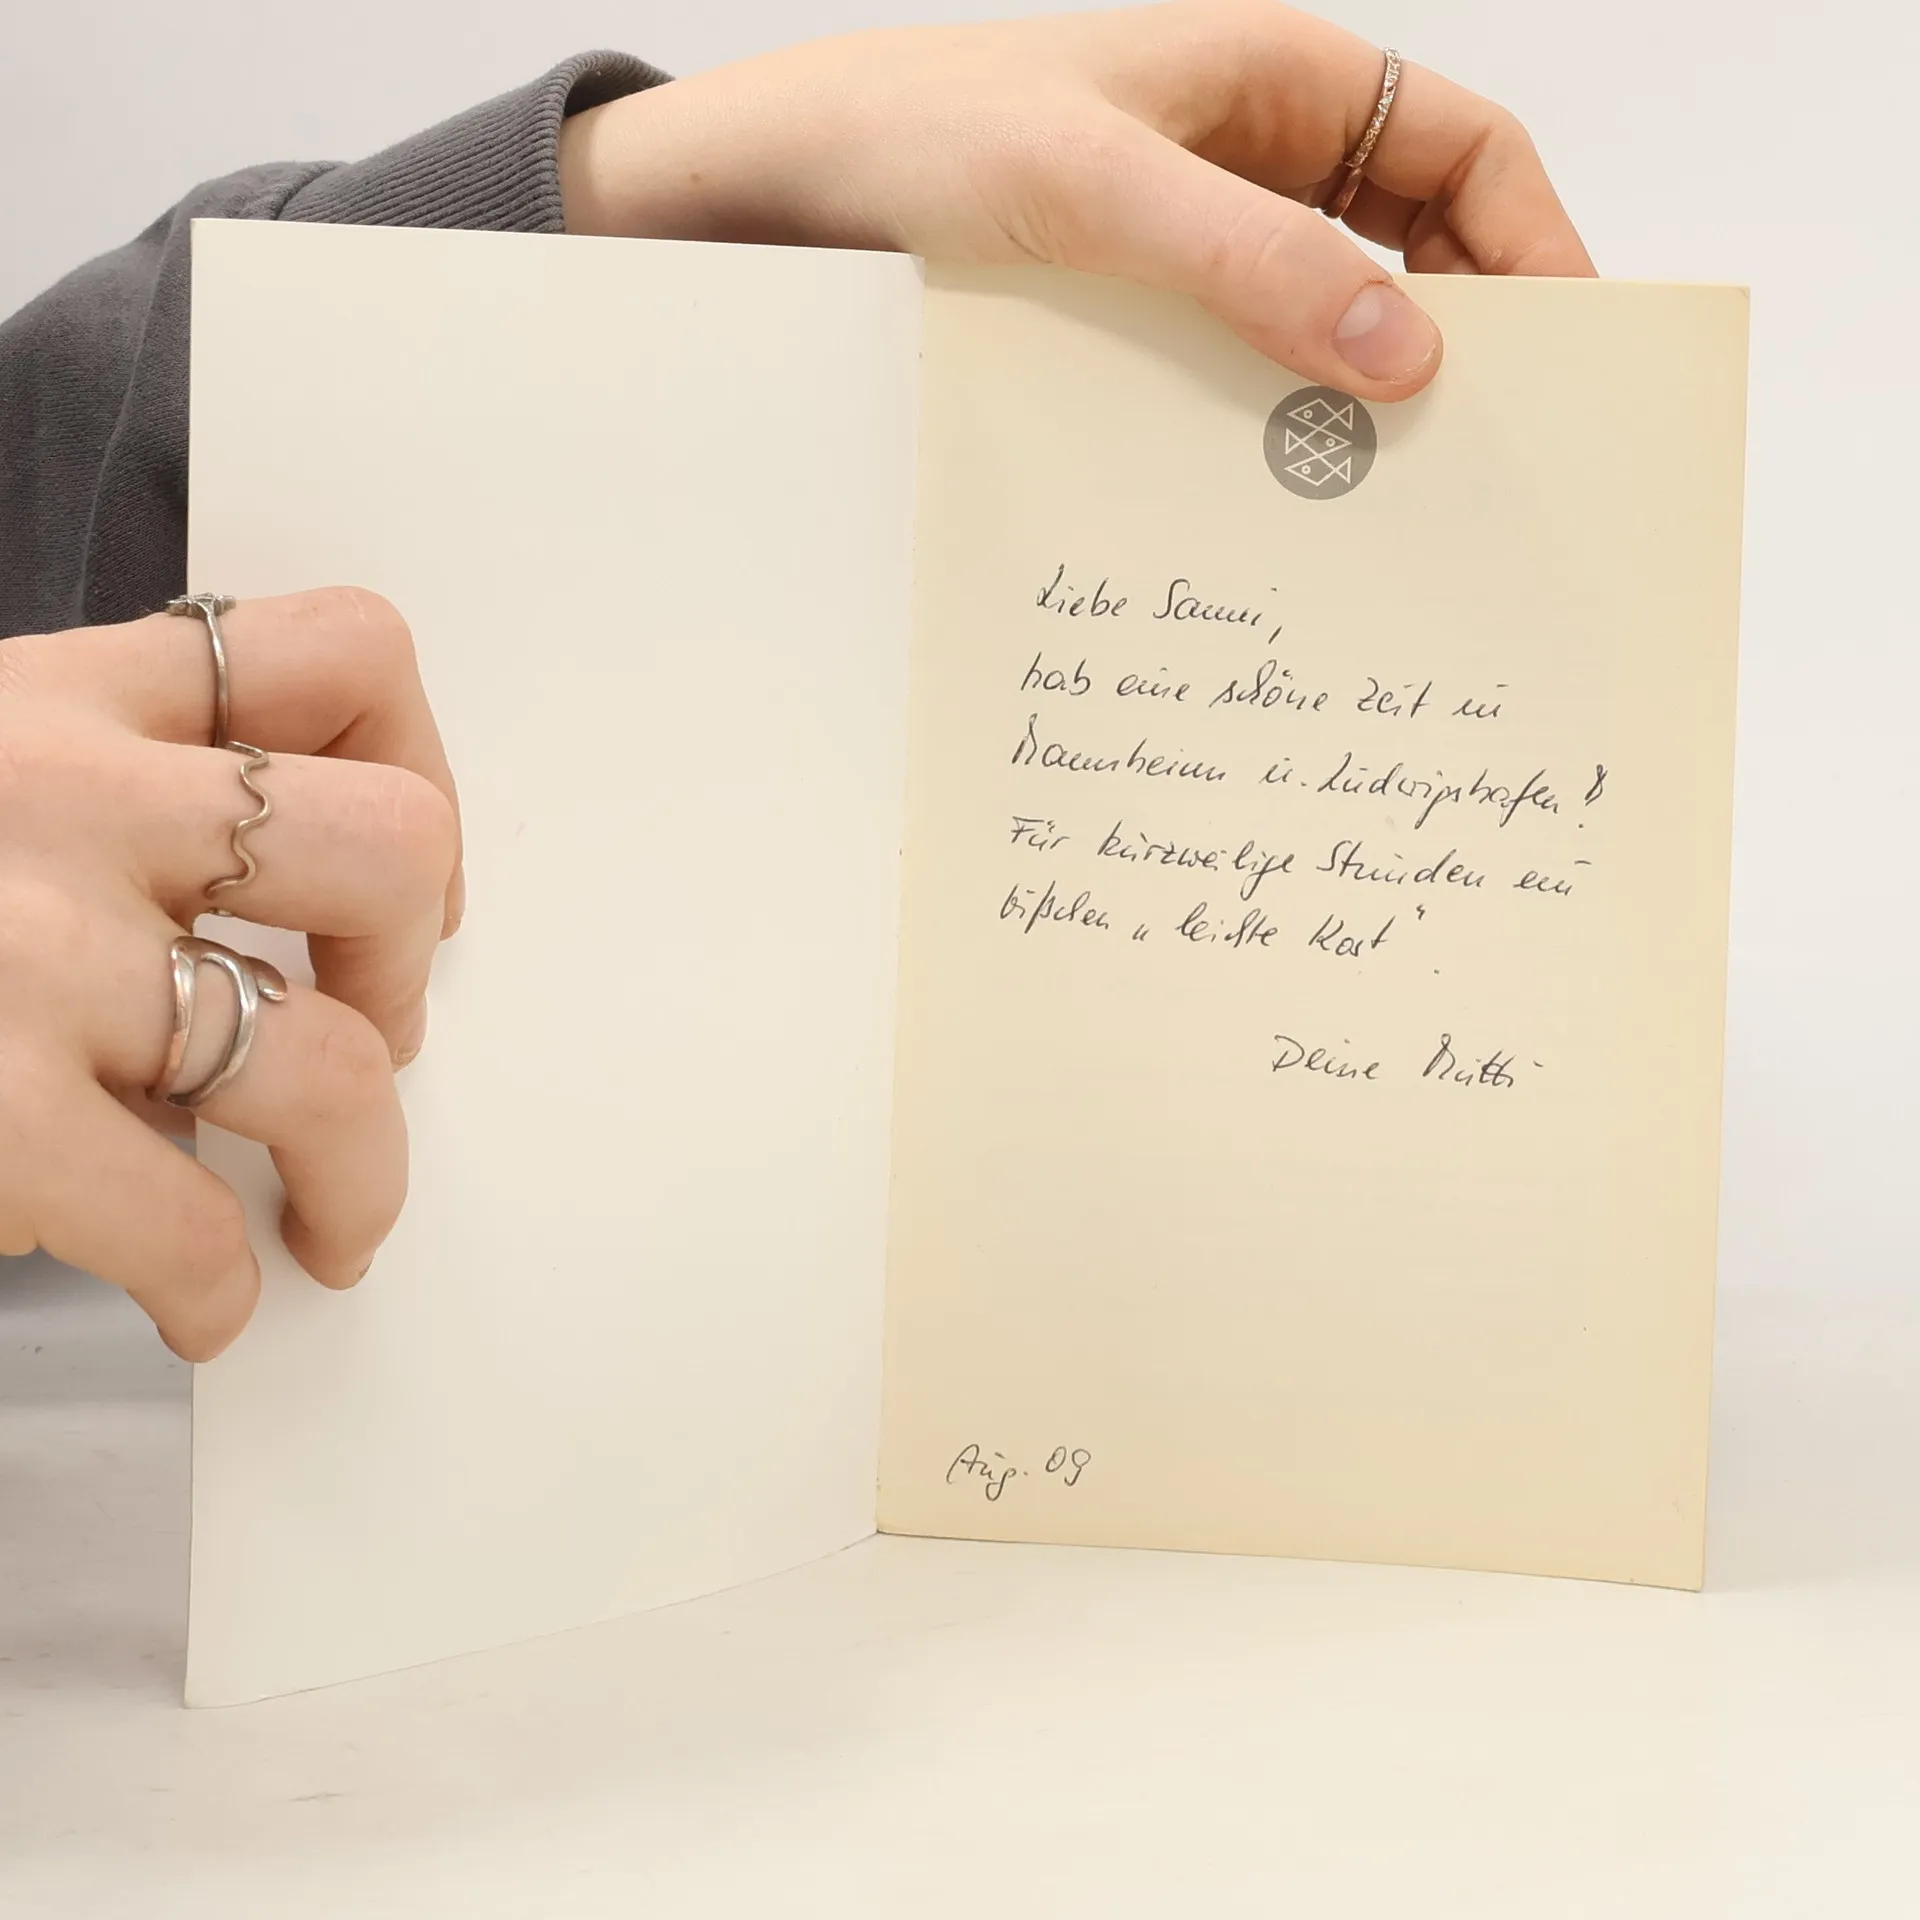 Liebe Sanni,
hab eine schöne Zeit in
Mannheim u. Ludwigshafen!
Für kurzweilige Stunden ein
bißchen „leichte Kost".
Deine Mutti
Aug. 09